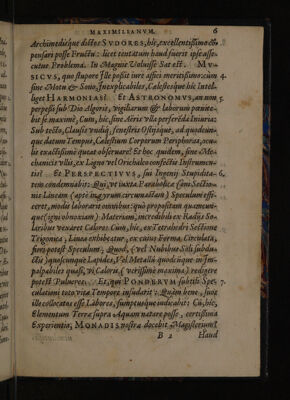 MAXIMILIANVM. 6
Archimedisque doctos SVDORES, hic, excellentissimo
pensari posse Fructu: licet tentatum haud fuerit ipse
cutus Problema. In Magnis Voluisse Sat est. MV-
SICVS, quo stupore Ille possit iure affici meritissimo: cum 4.
sine Motu & Sono, Inexplicabiles, Cœlestesque hic Intel-
liget HARMONIAS? Et ASTRONOMVS, an non
perpessi sub Dio Algoris, vigiliarum & Laborum
bit se maximè, Cum, hic, sine Aëris vlla perferēda Iniuria:
Sub tecto, Clausis vndiq, fenestris Ostijsque, ad quodcun-
que datum Tempus, Cælestium Corporum Periphorias, ocu-
lis exactissimè queat obseruare? Et hoc quidem, sine Me-
chanicis vllis, ex Ligno vel Orichalco confectis Instrumen-
tis? Et PERSPECTIVVS, sui Ingenij Stupidita- 6.
tem condemnabit: Qui, vt iuxta Parabolicæ Coni Sectio-
nis Lineam (aptè in gyrum circumactam) Speculum
ceret, modis laborarit omnibus: quò propositam quamcun-
que (igni obnoxiam) Materiam, incredibili ex Radijs So-
laribus vexaret Calore: Cum, hic, ex Tetrahedri Sectione
Trigonica, Linea exhibeatur, ex cuius Forma, Circulata,
fieri potest Speculum: Quod, (vel Nubibus Soli subdu-
ctis) quoscunque Lapides, Vel Metallū quodcūque in Im-
palpabiles quasi, vi Caloris, (verissimè maxima) redigere
potest Pulueres. Et, qui PONDERVM subtili Spe- 7.
culationi tota vita Tempore insudarit: Quàm bene, suos
ille collocatos esse Labores, sumptusque iudicabit: Cū, hic,
Elementum Terræ supra Aquam natare posse, certissima
Experientia, MONADIS nostræ docebit Magisterium?
B 2 Haud